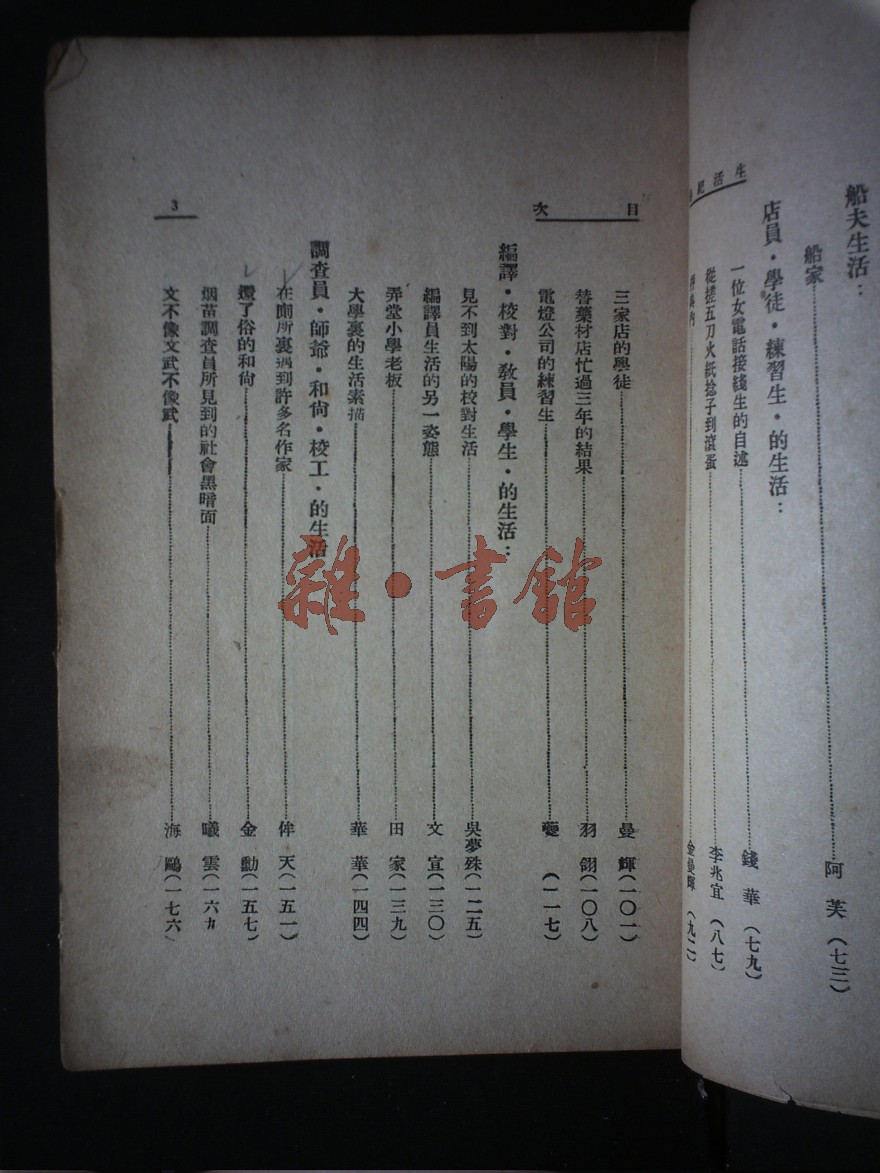 生活紀
船夫生活：
船家 阿芙（七三）
店員・學徒・練習生・的生活：
一位女電話接綫生的自述 錢華（七九）
從搓五刀火紙捻子到滾蛋 李兆宜（八七）
金曼輝（九二）
目次
三家店的學徒 曼輝（一〇一）
替藥材店忙過三年的結果 羽翎（一〇八）
電燈公司的練習生（一一七）
編譯・校對・敎員・學生・的生活：
見不到太陽的校對生活 吳夢殊（一二五）
編譯員生活的另一姿態 文宣（一三〇）
弄堂小學老板 田家（一三九）
大學裏的生活素描 華華（一四四）
調查員・師爺・和尙・校工・的生活
在廁所裏遇到許多名作家 侔天（一五一）
還了俗的和尙 金勳（一五七）
烟苗調查員所見到的社會黑暗面 曦雲（一六九
文不像文武不像武 海鷗（一七六）
3
雜・書館